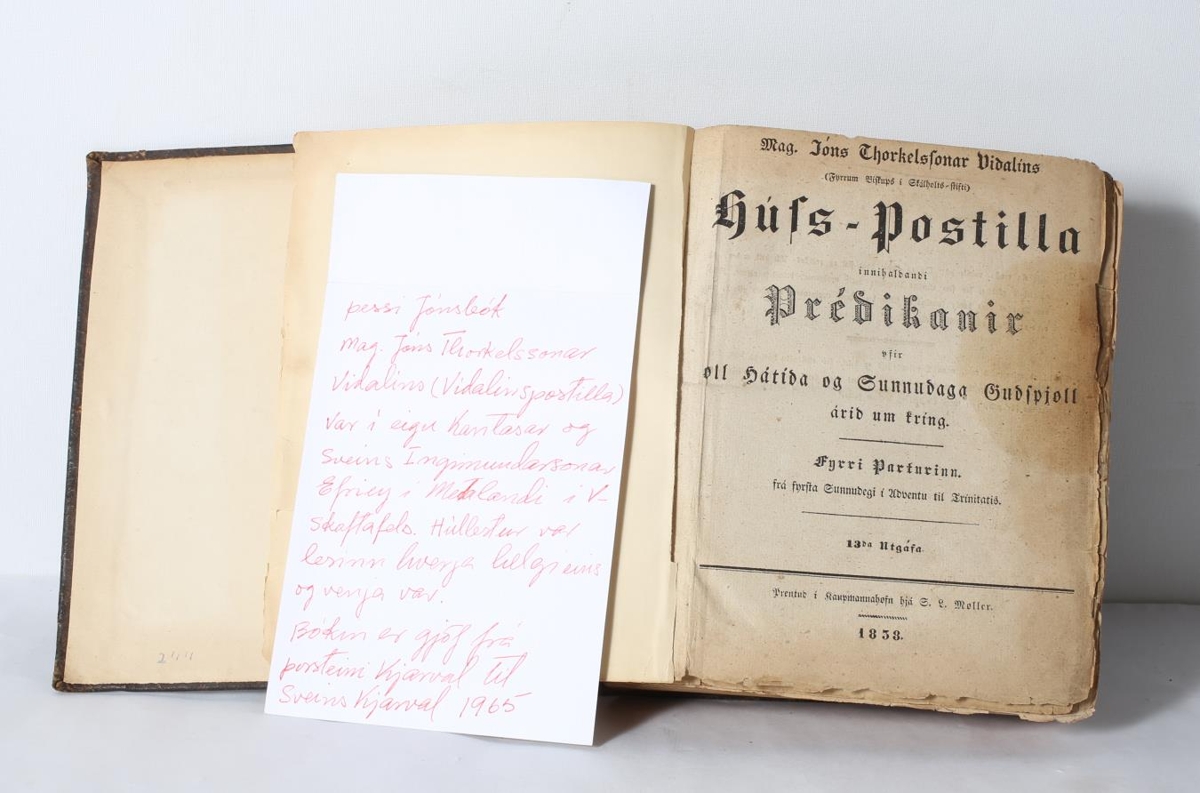 þessi Jónsbók
Mag. Jóns Thorkelssonar
Vidalins (Vidalinspostilla)
var í eigu Karitasar og
Sveins Ingimundarsonar
Efriey í Meðallandi í V-
Skaftafels. Húllestur var
lesinn hverja helgi eins
og venja var.
Bókin er gjöf frá
þorsteini Kjarval til
Sveins Kjarval 1965
Mag. Jóns Thorkelsſonar Vidalins
(Fyrrum Biſkups i Skálholts-ſtifti)
Húſs-Postilla
innihaldandi
Prédikanir
yfir
oll Hátida og Sunnudaga Gudſpjoll
árid um kring.
Fyrri Parturinn.
frá fyrſta Sunnudegi i Adventu til Trinitatis.
13da Utgáfa.
Prentud i Kaupmannahofn hjá S. L. Moller.
1838.